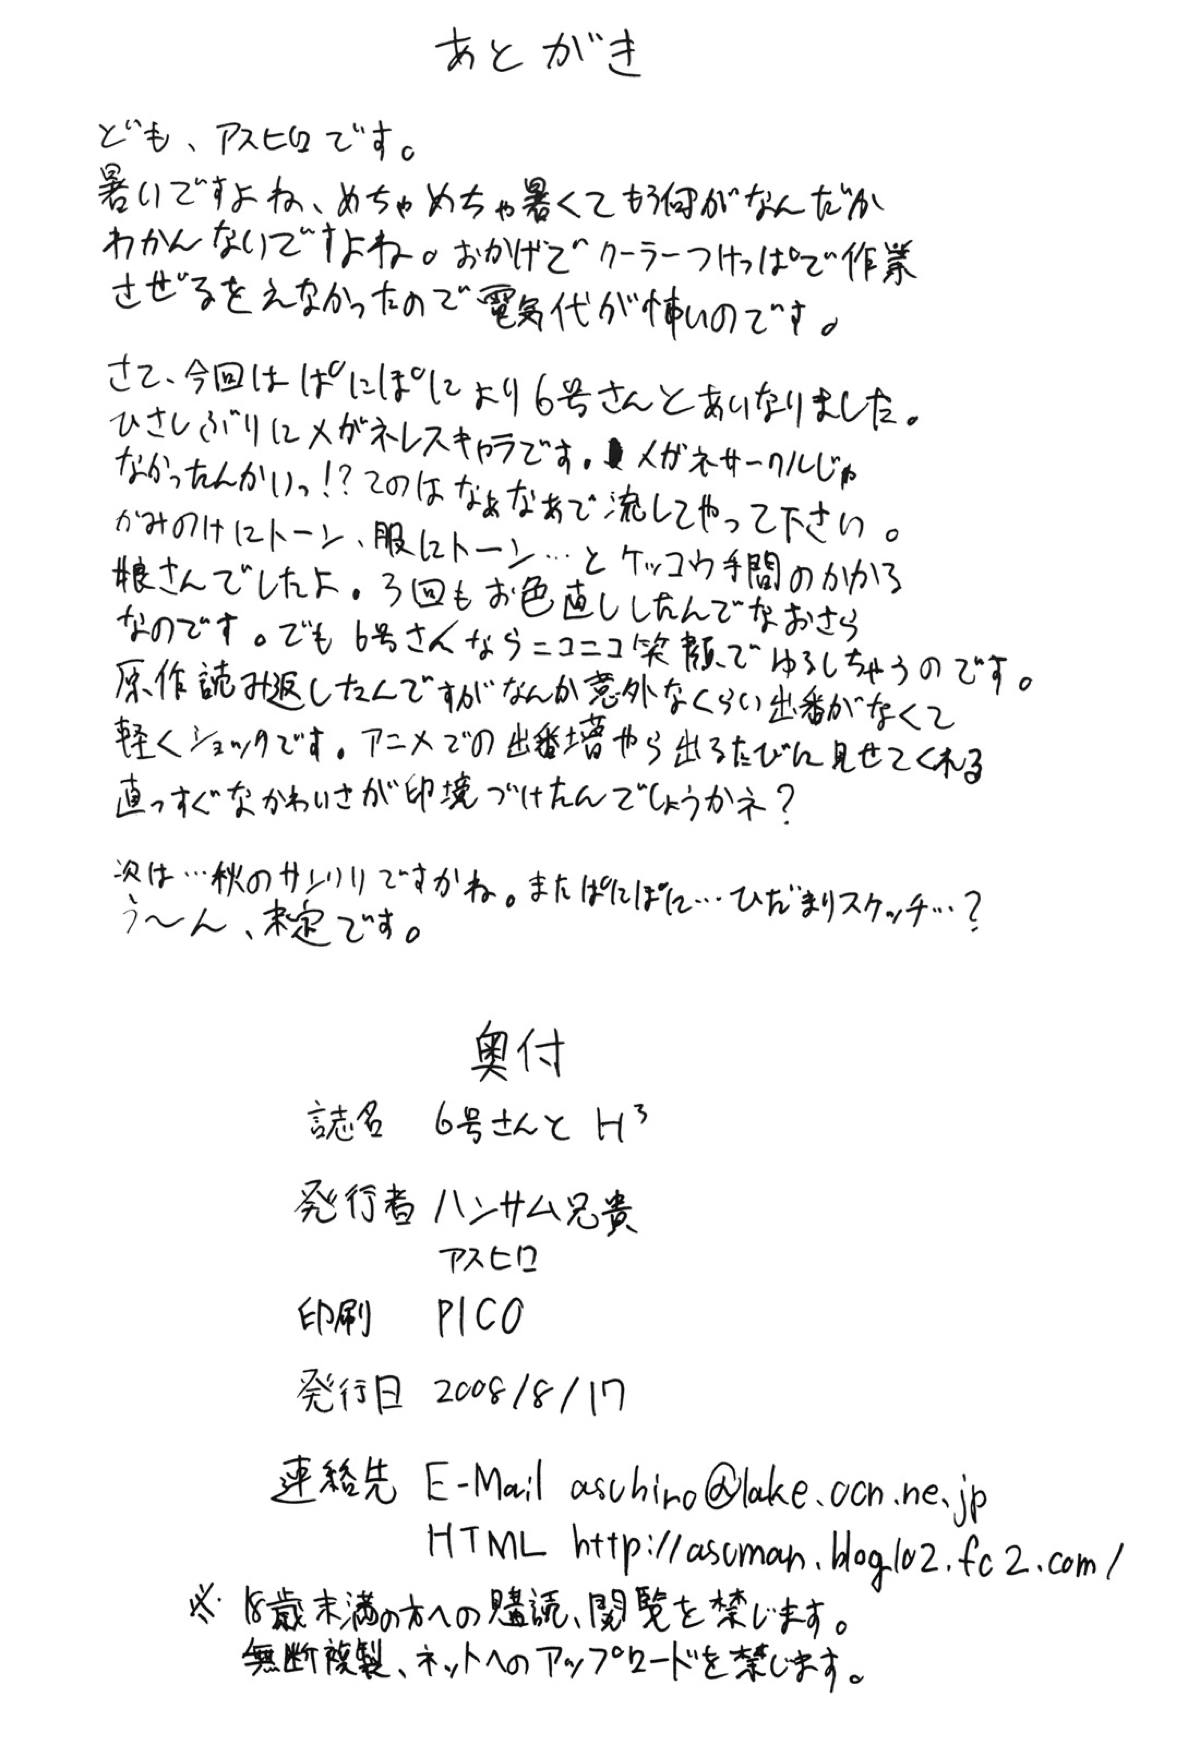 あとがき
ども、アスヒロです。
暑いですよね、めちゃめちゃ暑くてもう何がなんだか
わかんないですよね。おかげでクーラーつけっぱで作業
させざるをえなかったので電気代が怖いのです。
さて、今回はぱにぽにより6号さんとあいなりました。
ひさしぶりにメガネレスキャラです。メガネサークルじゃ
なかったんかいっ!?てのはなぁなぁで流してやって下さい。
かみのけにトーン、服にトーン…とケッコウ手間のかかる
娘さんでしたよ。3回もお色直ししたんでなおさら
なのです。でも6号さんならニコニコ笑顔でゆるしちゃうのです。
原作読み返したんですがなんか意外なくらい出番がなくて
軽くショックです。アニメでの出番増やら出るたびに見せてくれる
直っすぐなかわいさが印境づけたんでしょうかネ?
次は…秋のサンクリですかね。またぱにぽに…ひだまりスケッチ…?
う〜ん、未定です。
奥付
誌名 6号さんとH³
発行者 ハンサム兄貴
アスヒロ
印刷 PICO
発行日 2008/8/17
連絡先 E-Mail asuhiro@lake.ocn.ne.jp
HTML http://asuman.blog102.fc2.com/
※18歳未満の方への購読、閲覧を禁じます。
無断複製、ネットへのアップロードを禁じます。